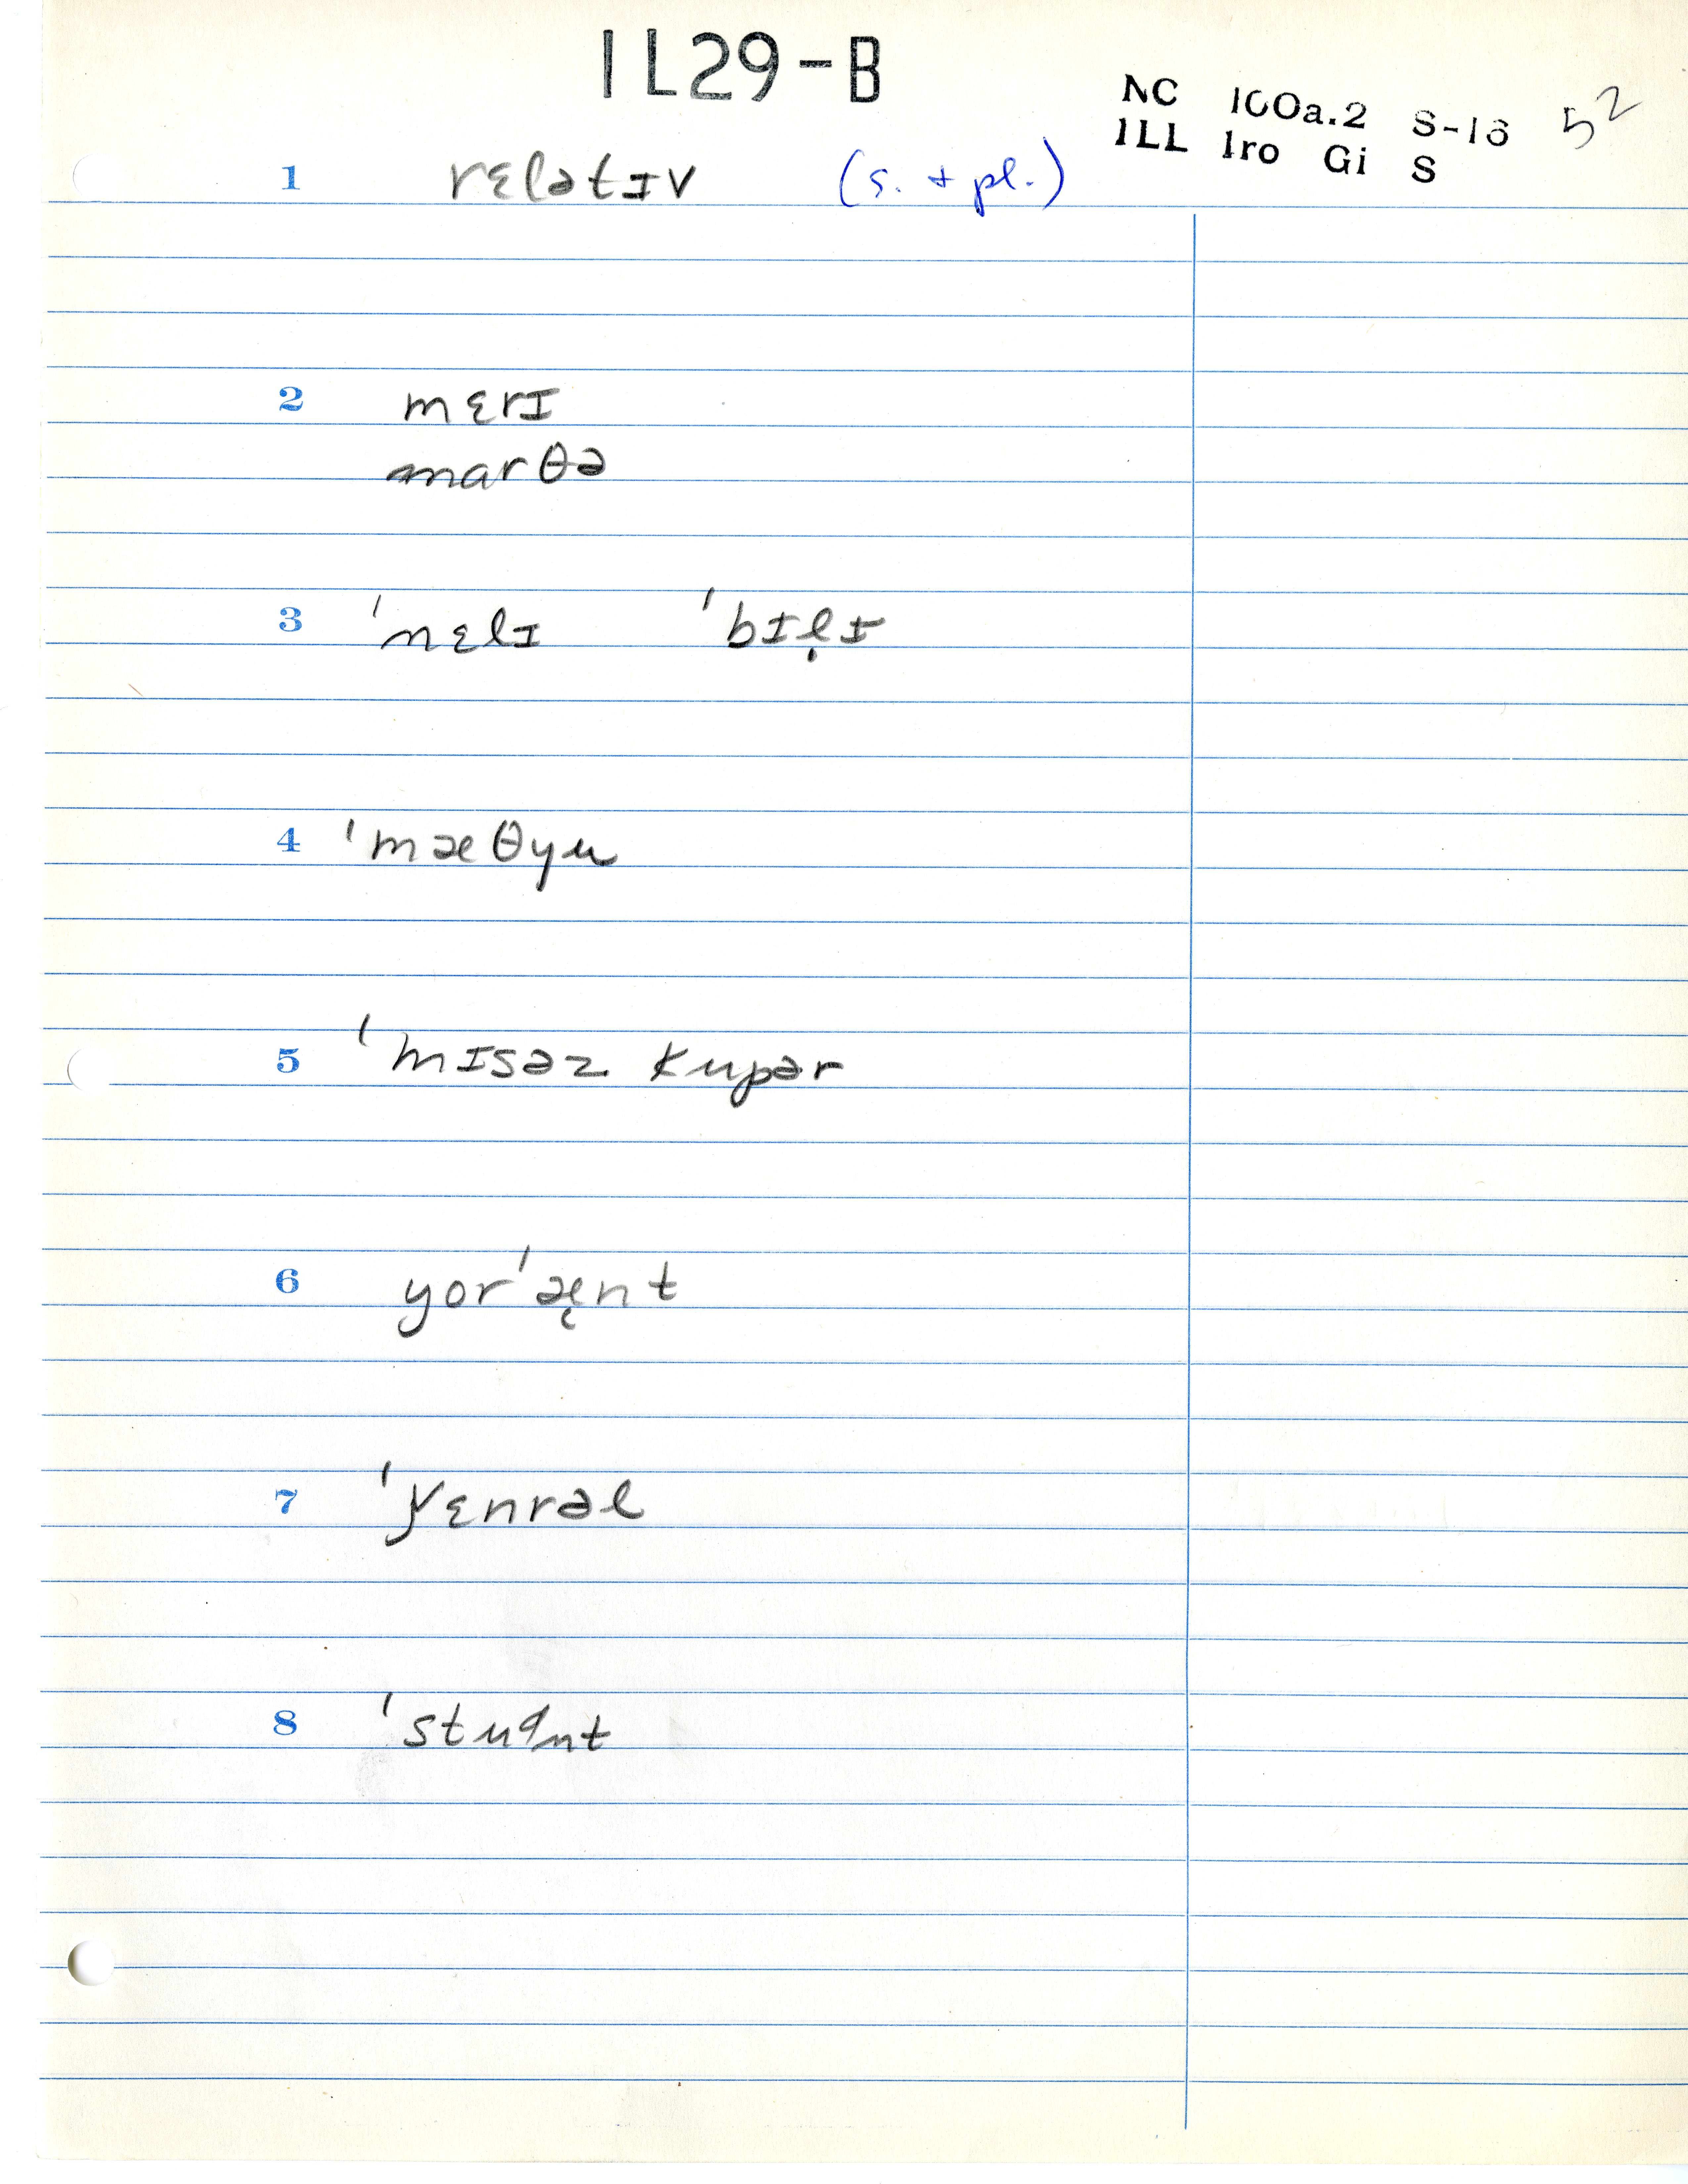 IL29-B
NC 100a.2 S-16 52
ILL Iro Gi S
1 rɛlətɪv (s. + pl.)
2 mɛrɪ
marθə
3 ˈnɛlɪ ˈbɪḷɪ
4 ˈmæθyu
5 ˈmɪsəz kupər
6 yorˈæ̜nt
7
8 ˈstudn̩t